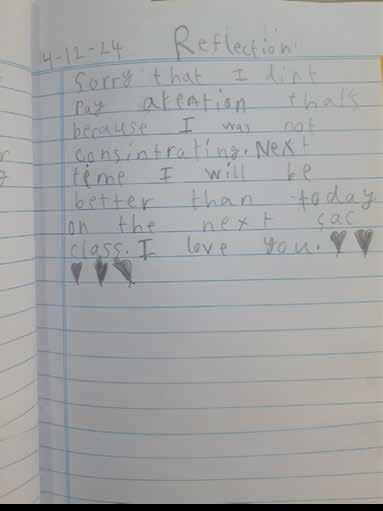 4-12-24 Reflection
Sorry that I dint
pay atention thats
because I was not
consintrating. Next
time I will be
better than today
on the next sac
class. I love you.